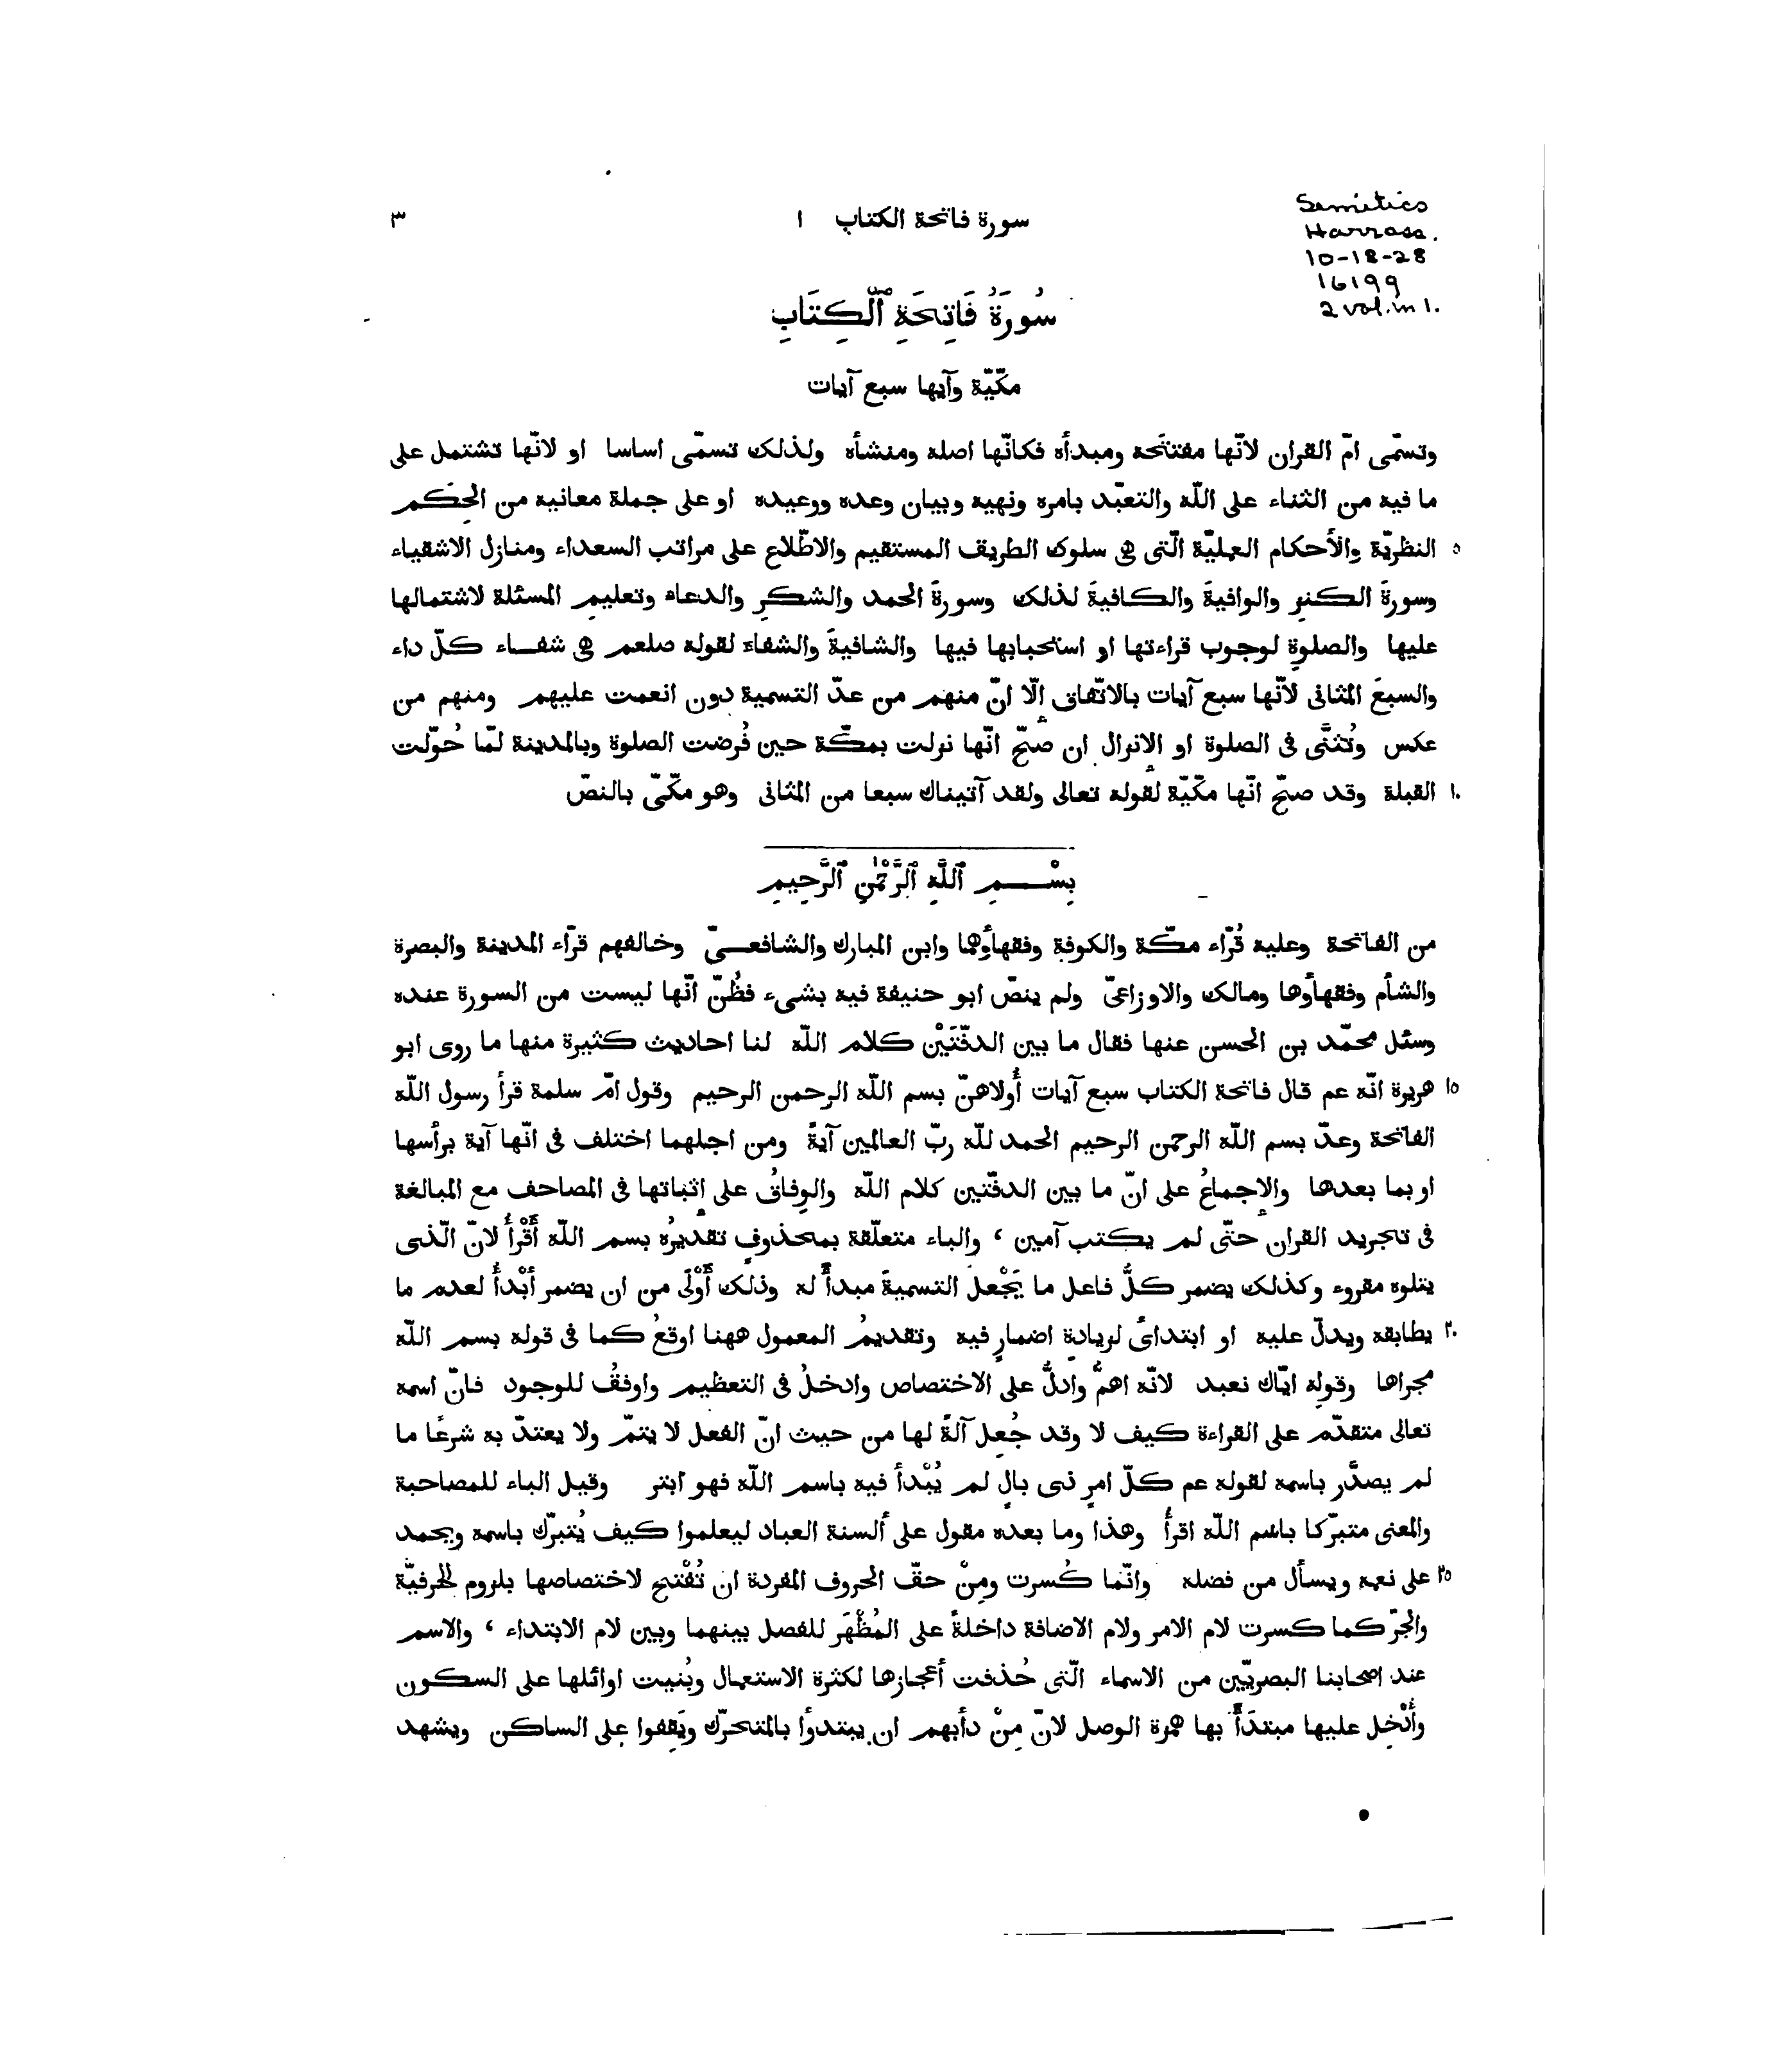 Semitics
Harrass.
10-18-28
16199
2 vol. in 1.
سورة فاتحة الكتاب ١
٣
سُورَةُ فَاتِحَةِ ٱلْكِتَابِ
مكّيّة وآيها سبع آيات
وتسمّى امّ القران لانّها مفتتَحه ومبدأه فكانّها اصله ومنشأه ولذلك تسمّى اساسا او لانّها تشتمل على
ما فيه من الثناء على اللّه والتعبّد بامره ونهيه وبيان وعده ووعيده او على جملة معانيه من الحِكَم
٥ النظريّة والأحكام العمليّة الّتى هى سلوك الطريق المستقيم والاطّلاع على مراتب السعداء ومنازل الاشقياء
وسورةَ الكنزِ والوافيةَ والكافيةَ لذلك وسورةَ الحمد والشكرِ والدعاء وتعليمِ المسئلة لاشتمالها
عليها والصلوةِ لوجوب قراءتها او استحبابها فيها والشافيةَ والشفاءَ لقوله صلعم هى شفاء كلّ داء
والسبعَ المثانى لانّها سبع آيات بالاتّفاق إلّا انّ منهم من عدّ التسمية دون انعمت عليهم ومنهم من
عكس وتُثنَّى فى الصلوة او الإنزال ان صحّ انّها نزلت بمكّة حين فُرضت الصلوة وبالمدينة لمّا حُوّلت
١٠ القبلة وقد صحّ انّها مكّيّة لقوله تعالى ولقد آتيناك سبعا من المثانى وهو مكّىّ بالنصّ
بِسْمِ ٱللَّهِ ٱلرَّحْمٰنِ ٱلرَّحِيمِ
من الفاتحة وعليه قُرّاء مكّة والكوفة وفقهاؤهما وابن المبارك والشافعىّ وخالفهم قرّاء المدينة والبصرة
والشأم وفقهاؤها ومالك والاوزاعىّ ولم ينصّ ابو حنيفة فيه بشىء فظُنّ انّها ليست من السورة عنده
وسئل محمّد بن الحسن عنها فقال ما بين الدفّتَيْن كلام اللّه لنا احاديث كثيرة منها ما روى ابو
١٥ هريرة انّه عم قال فاتحة الكتاب سبع آيات أُولاهنّ بسم اللّه الرحمن الرحيم وقول امّ سلمة قرأ رسول اللّه
الفاتحة وعدّ بسم اللّه الرحمن الرحيم الحمد للّه ربّ العالمين آيةً ومن اجلهما اختلف فى انّها آية برأسها
او بما بعدها والإجماعُ على انّ ما بين الدفّتين كلام اللّه والوِفاقُ على إثباتها فى المصاحف مع المبالغة
فى تجريد القران حتّى لم يكتب آمين ، والباء متعلّقة بمحذوفٍ تقديرُه بسم اللّه أَقْرَأُ لانّ الّذى
يتلوه مقروء وكذلك يضمر كلُّ فاعل ما يَجْعل التسميةَ مبدأً له وذلك أَوْلَى من ان يضمر أَبْدأُ لعدم ما
٢٠ يطابقه ويدلّ عليه او ابتدائى لزيادةِ اضمارٍ فيه وتقديمُ المعمول ههنا اوقعُ كما فى قوله بسم اللّه
مجراها وقولِه ايّاك نعبد لانّه اهمُّ وادلُّ على الاختصاص وادخلُ فى التعظيم واوفقُ للوجود فانّ اسمه
تعالى متقدّم على القراءة كيف لا وقد جُعِل آلةً لها من حيث انّ الفعل لا يتمّ ولا يعتدّ به شرعًا ما
لم يصدَّر باسمه لقوله عم كلّ امرٍ ذى بالٍ لم يُبْدأ فيه باسم اللّه فهو ابتر وقيل الباء للمصاحبة
والمعنى متبرّكا باسم اللّه اقرأُ وهذا وما بعده مقول على ألسنة العباد ليعلموا كيف يُتبرّك باسمه ويحمد
٢٥ على نعمه ويسأل من فضله وانّما كُسرت ومِنْ حقّ الحروف المفردة ان تُفْتح لاختصاصها بلزوم الحرفيّة
والجرّ كما كسرت لام الامر ولام الاضافة داخلةً على المُظْهَر للفصل بينهما وبين لام الابتداء ، والاسم
عند اصحابنا البصريّين من الاسماء الّتى حُذفت أعجازها لكثرة الاستعمال وبُنيت اوائلها على السكون
وأُدْخِل عليها مبتدَأً بها همزة الوصل لانّ مِنْ دأبهم ان يبتدؤا بالمتحرّك ويَقِفوا على الساكن ويشهد